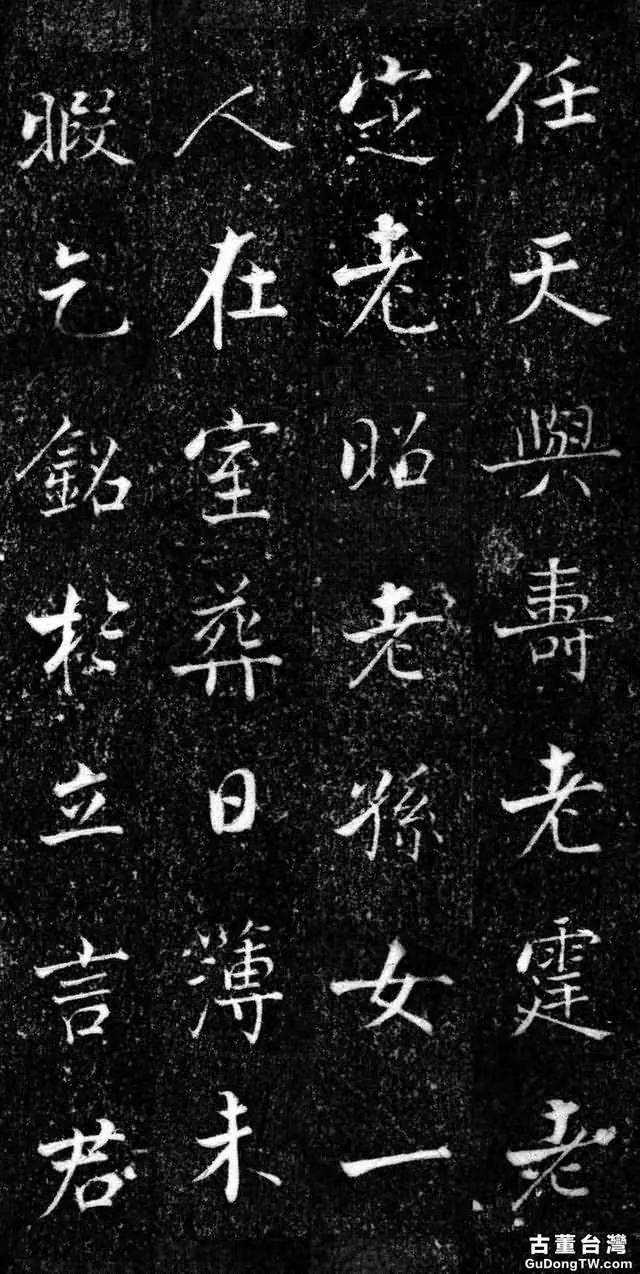 任天與壽老霆老
定老昭老孫女一
人在室葬日薄未
暇乞銘於立言君
古董台灣
GuDongTW.com